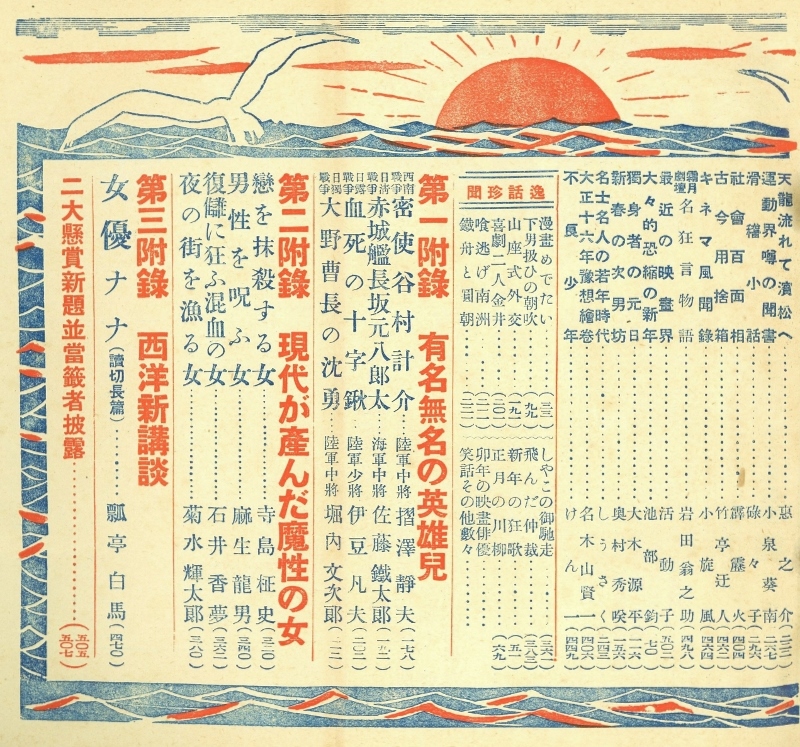 天龍流れて濱松へ………惠之介(二三三)
運動界噂の聞書………小泉葵南(二六七)
滑稽小話………碌々子(二九六)
社會百面相………霹靂火(四〇四)
古今用捨箱………竹亭迂人(四六二)
キネマ風聞錄………小旋風(四六四)
霜月劇壇名狂言物語………岩田翁之助(四九八)
最近の映畫界………活動子(五〇二)
大々的恐縮の新年………池部鈞(七〇)
獨身者の元日………大木源平(一一六)
新春の次男坊………奥村秀咲(一五六)
名士名人の若年時代………しうさく(二四三)
大正十六年豫想繪卷………名木山賢一(四四一)
不良少年………けん一(四四九)
逸話珍聞
漫畫めでたい………(三二)
下男扱ひの朝吹………(九九)
山座式外交………(一九一)
喜劇二人金井………(二〇一)
喰逃げ南洲………(二一一)
鐵舟と圓朝………(二三一)
しやこの御馳走………(三六)
飛んだ仲裁………(三八三)
新年の狂歌………(五一)
正月の川柳………(六九)
卯年の映畫俳優………
笑話その他數々………
第一附錄 有名無名の英雄兒
西南戰爭 密使谷村計介…陸軍中將 摺澤靜夫(一七八)
日清戰爭 赤城艦長坂元八郎太…海軍中將 佐藤鐵太郎(一九二)
日露戰爭 血死の十字鍬…陸軍少將 伊豆凡夫(二〇二)
日獨戰爭 大野曹長の沈勇…陸軍中將 堀內文次郎(二一二)
第二附錄 現代が產んだ魔性の女
戀を抹殺する女………寺島柾史(三二〇)
男性を呪ふ女………麻生龍男(三四〇)
復讎に狂ふ混血の女………石井香夢(三六二)
夜の街を漁る女………菊水輝太郎(三八〇)
第三附錄 西洋新講談
女優ナナ(讀切長篇)………瓢亭白馬(四七〇)
二大懸賞新題並當籤者披露………(五〇五 五〇七)